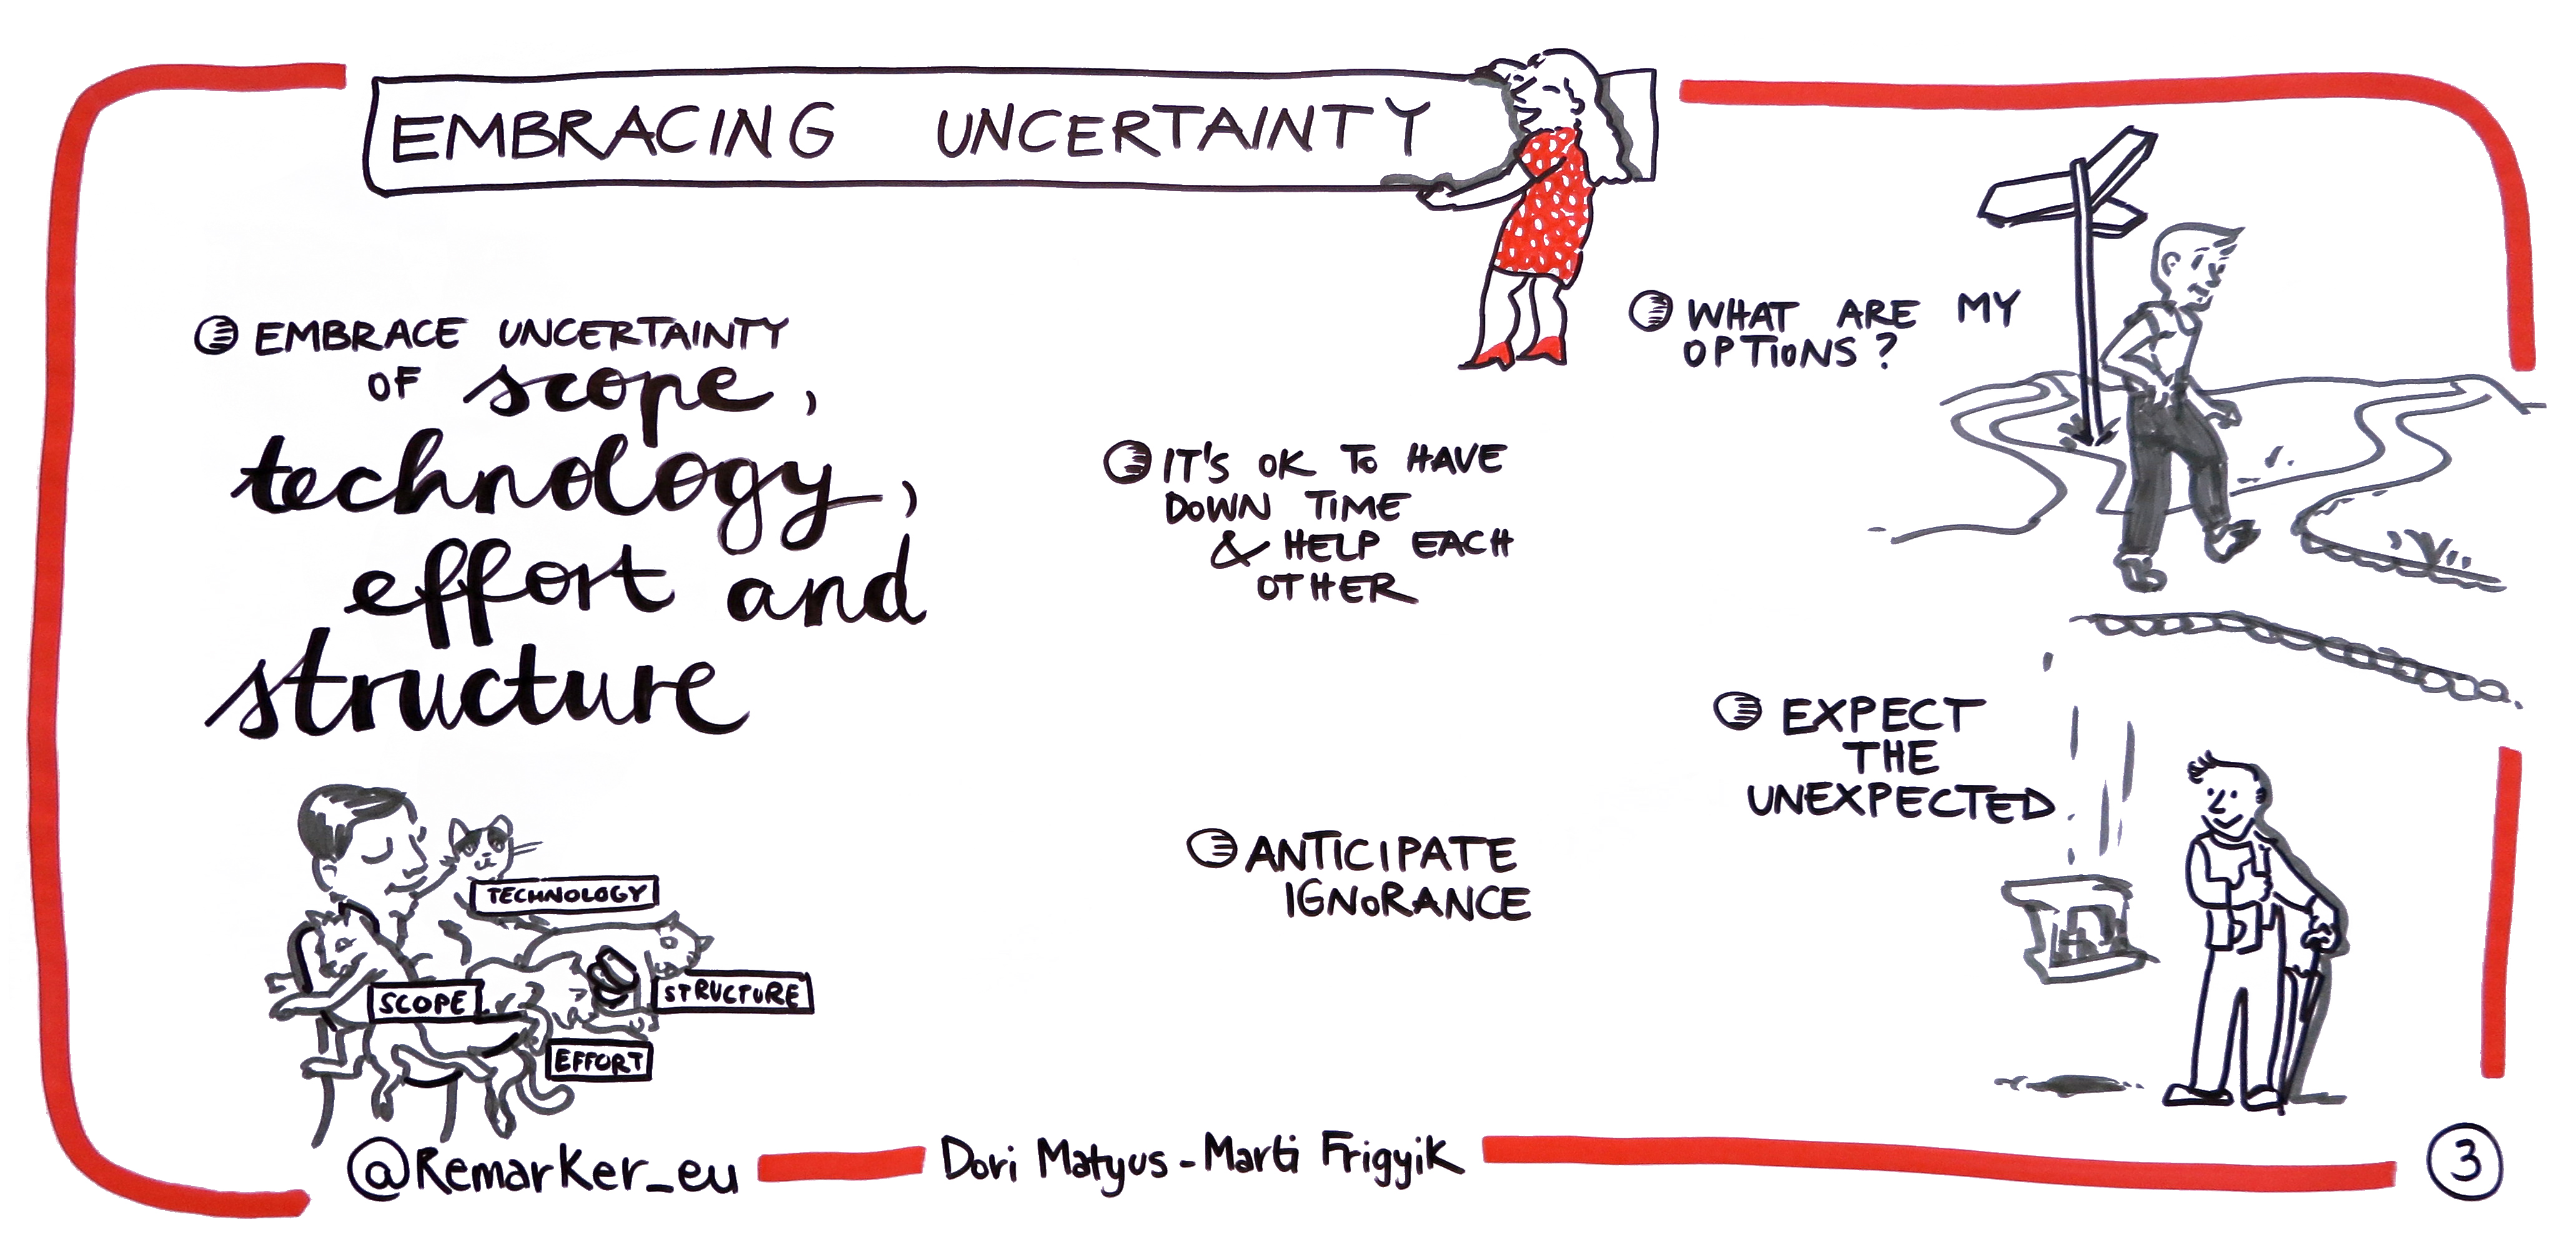 EMBRACING UNCERTAINTY
EMBRACE UNCERTAINTY
OF scope,
technology,
effort and
structure
TECHNOLOGY
SCOPE
STRUCTURE
EFFORT
IT'S OK TO HAVE
DOWN TIME
& HELP EACH
OTHER
ANTICIPATE
IGNORANCE
WHAT ARE MY
OPTIONS?
EXPECT
THE
UNEXPECTED
@Remarker_eu
Dori Matyus - Marti Frigyik
3